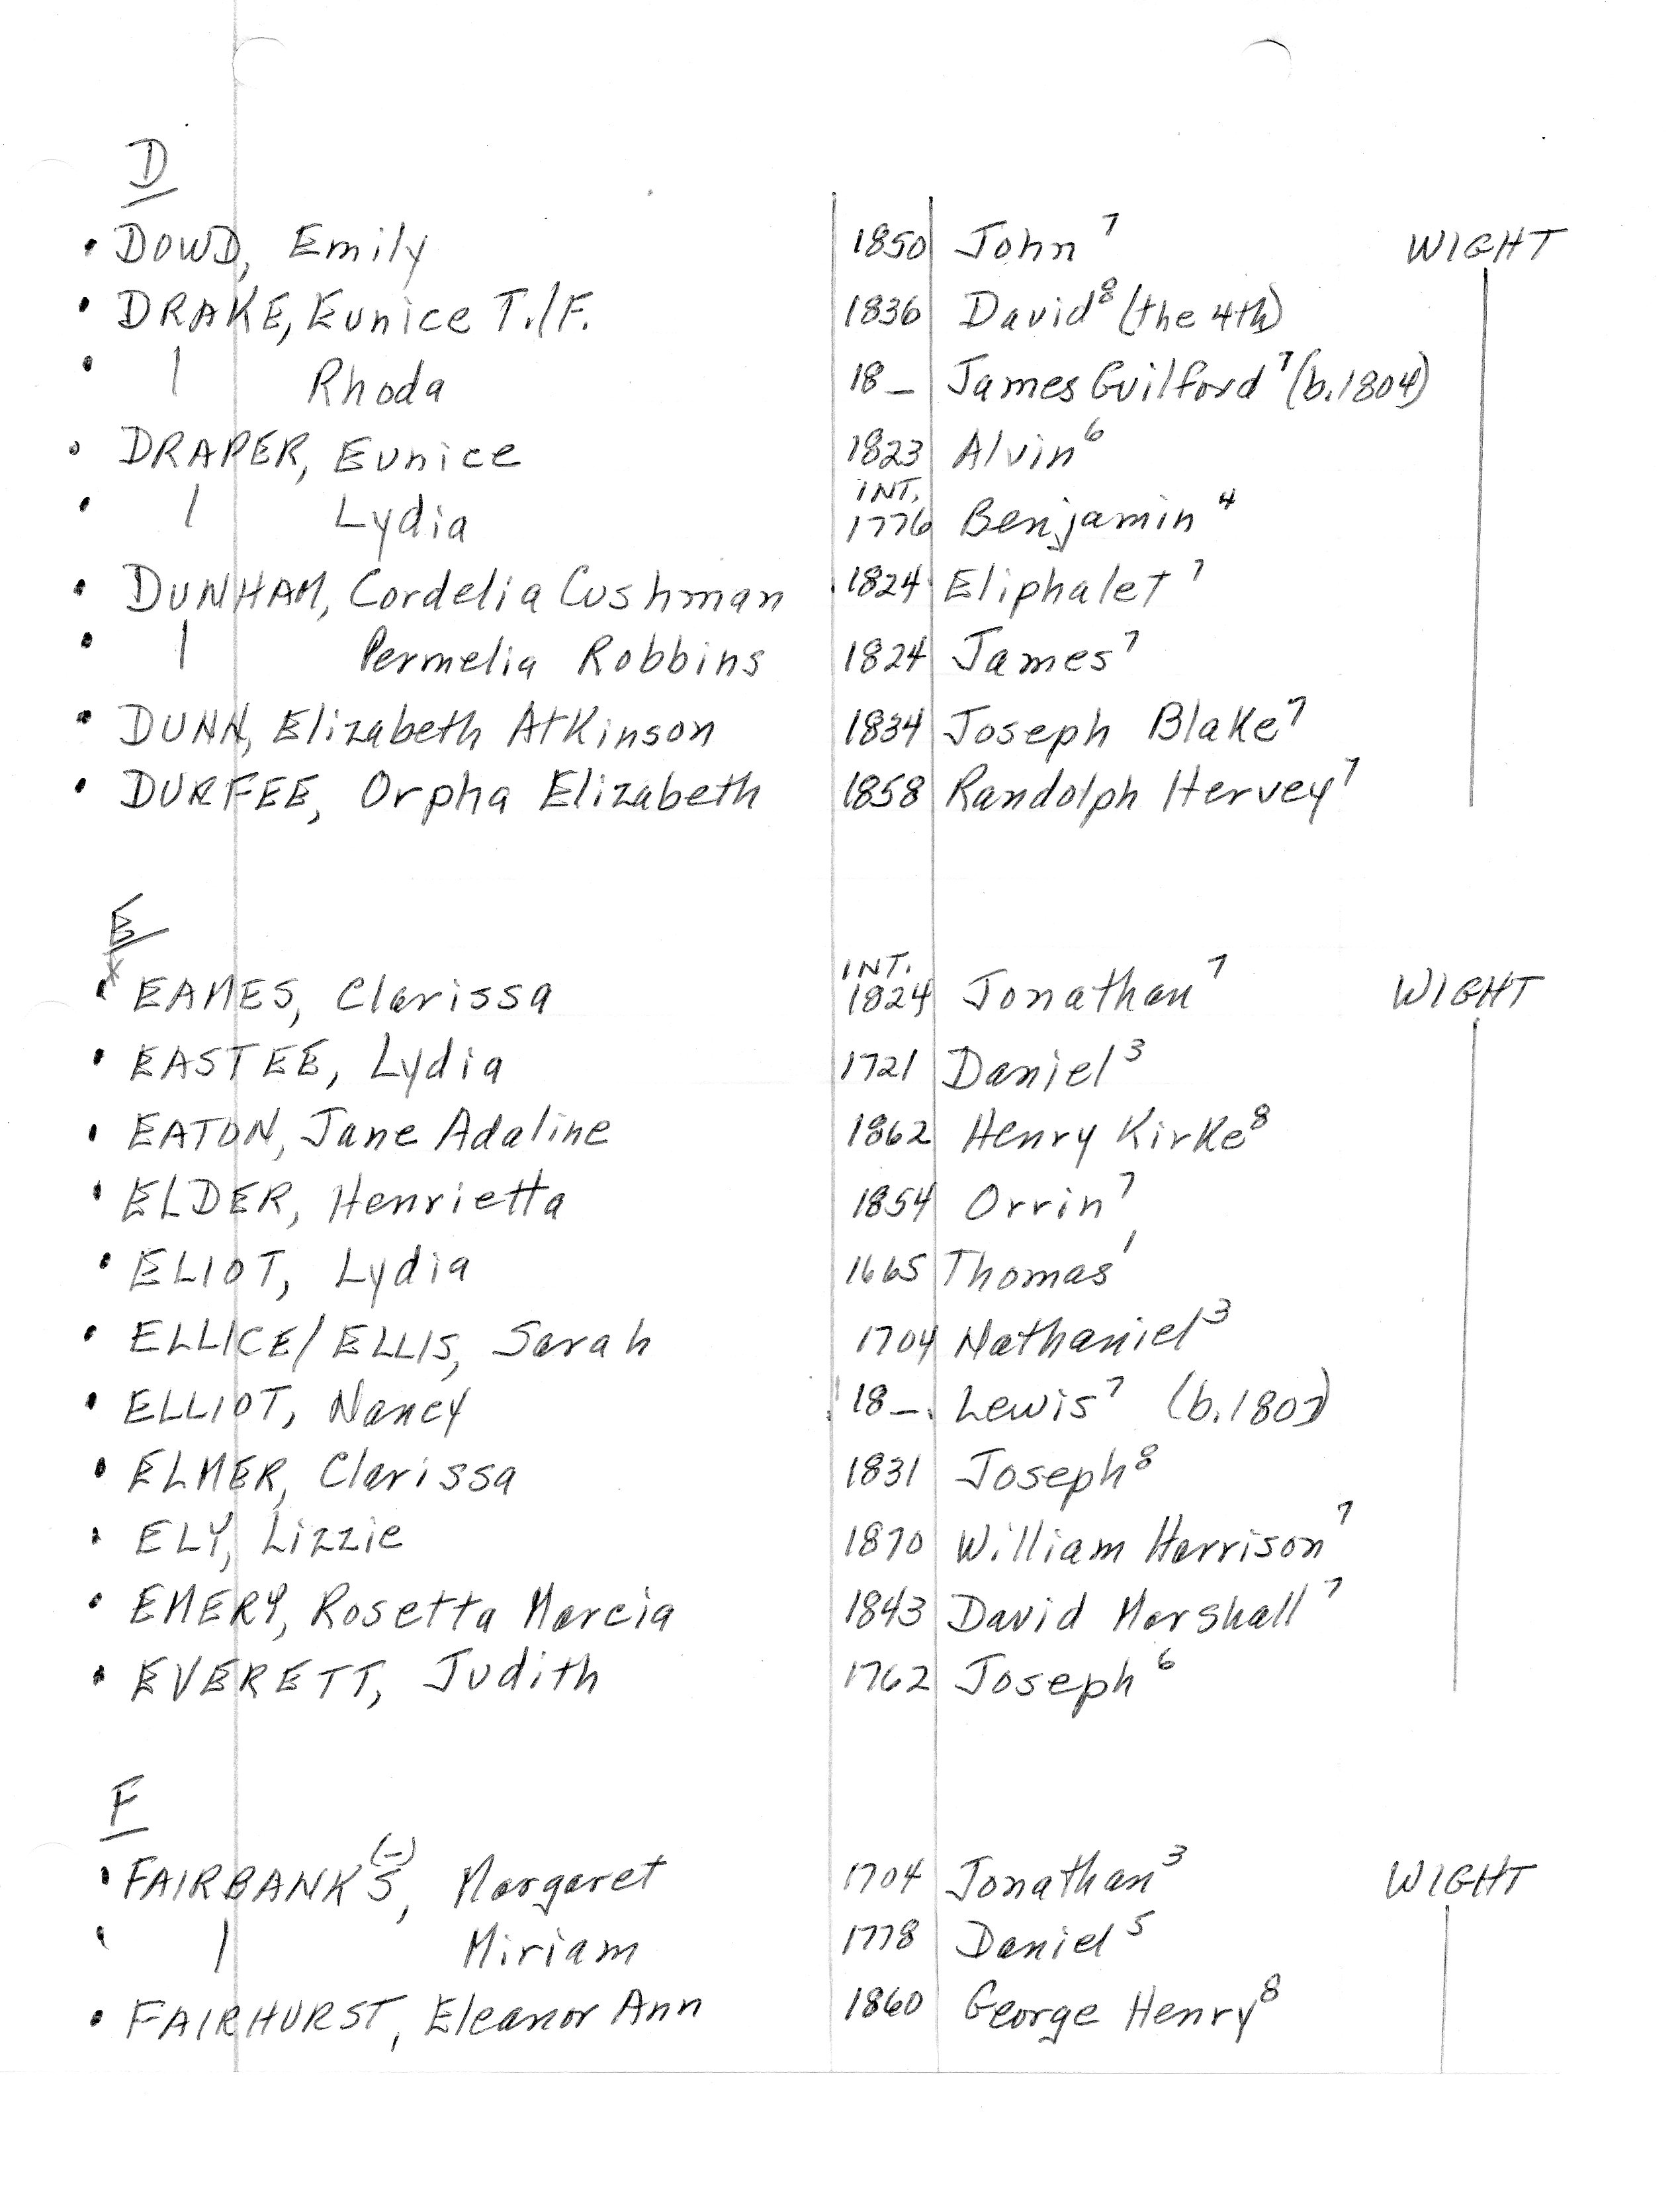 D
• DOWD, Emily 1850 John⁷ WIGHT
• DRAKE, Eunice T./F. 1836 David⁸ (the 4th)
• | Rhoda 18_ James Guilford⁷ (b.1804)
• DRAPER, Eunice 1823 Alvin⁶
INT.
• | Lydia 1776 Benjamin⁴
• DUNHAM, Cordelia Cushman 1824 Eliphalet⁷
• | Permelia Robbins 1824 James⁷
• DUNN, Elizabeth Atkinson 1834 Joseph Blake⁷
• DURFEE, Orpha Elizabeth 1858 Randolph Hervey⁷
E
x INT.
• EAMES, Clarissa 1824 Jonathan⁷ WIGHT
• EASTEE, Lydia 1721 Daniel³
• EATON, Jane Adaline 1862 Henry Kirke⁸
• ELDER, Henrietta 1854 Orrin⁷
• ELIOT, Lydia 1665 Thomas¹
• ELLICE/ELLIS, Sarah 1704 Nathaniel³
• ELLIOT, Nancy 18_. Lewis⁷ (b.1807)
• ELMER, Clarissa 1831 Joseph⁸
• ELY, Lizzie 1870 William Harrison⁷
• EMERY, Rosetta Marcia 1843 David Marshall⁷
• EVERETT, Judith 1762 Joseph⁶
F
(-)
• FAIRBANKS, Margaret 1704 Jonathan³ WIGHT
• | Miriam 1778 Daniel⁵
• FAIRHURST, Eleanor Ann 1860 George Henry⁸